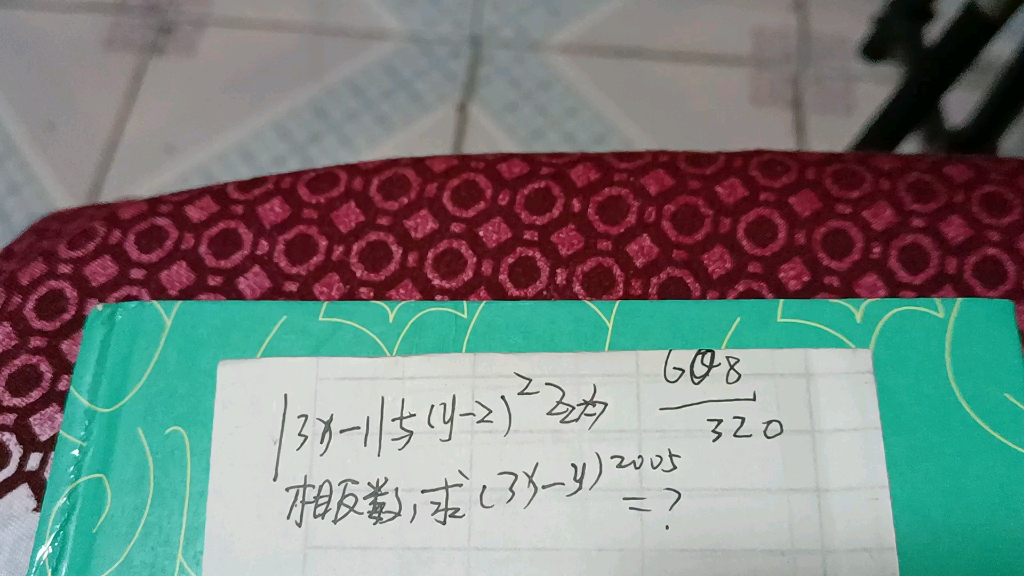 |3x-1|与(y-2)²互为
相反数,求(3x-y)²⁰⁰⁵=?
608
320